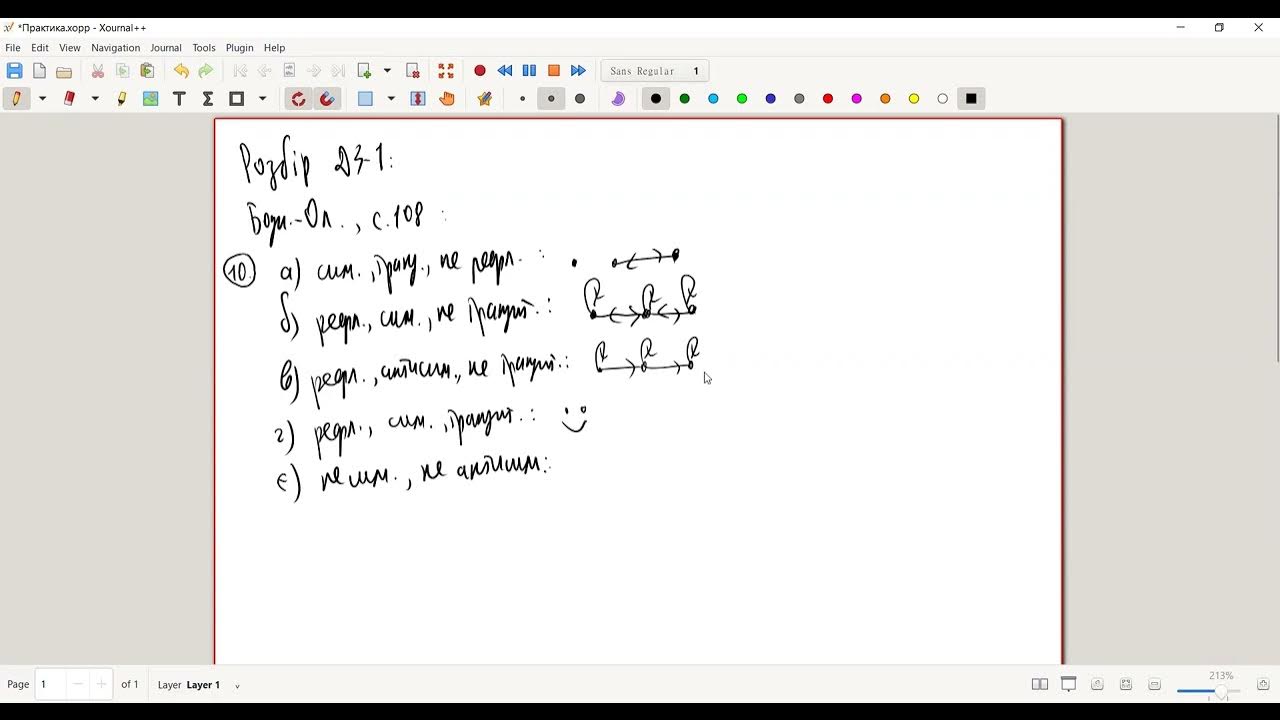 *Практика.xopp - Xournal++
File Edit View Navigation Journal Tools Plugin Help
Sans Regular 1
Розбір ДЗ-1:
Бодн.-Ол., с.108 :
10. а) сим., транз., не рефл. :
б) рефл., сим., не транзит. :
в) рефл., антисим., не транзит. :
г) рефл., сим., транзит. :
є) не сим., не антисим. :
Page 1 of 1 Layer Layer 1 213%